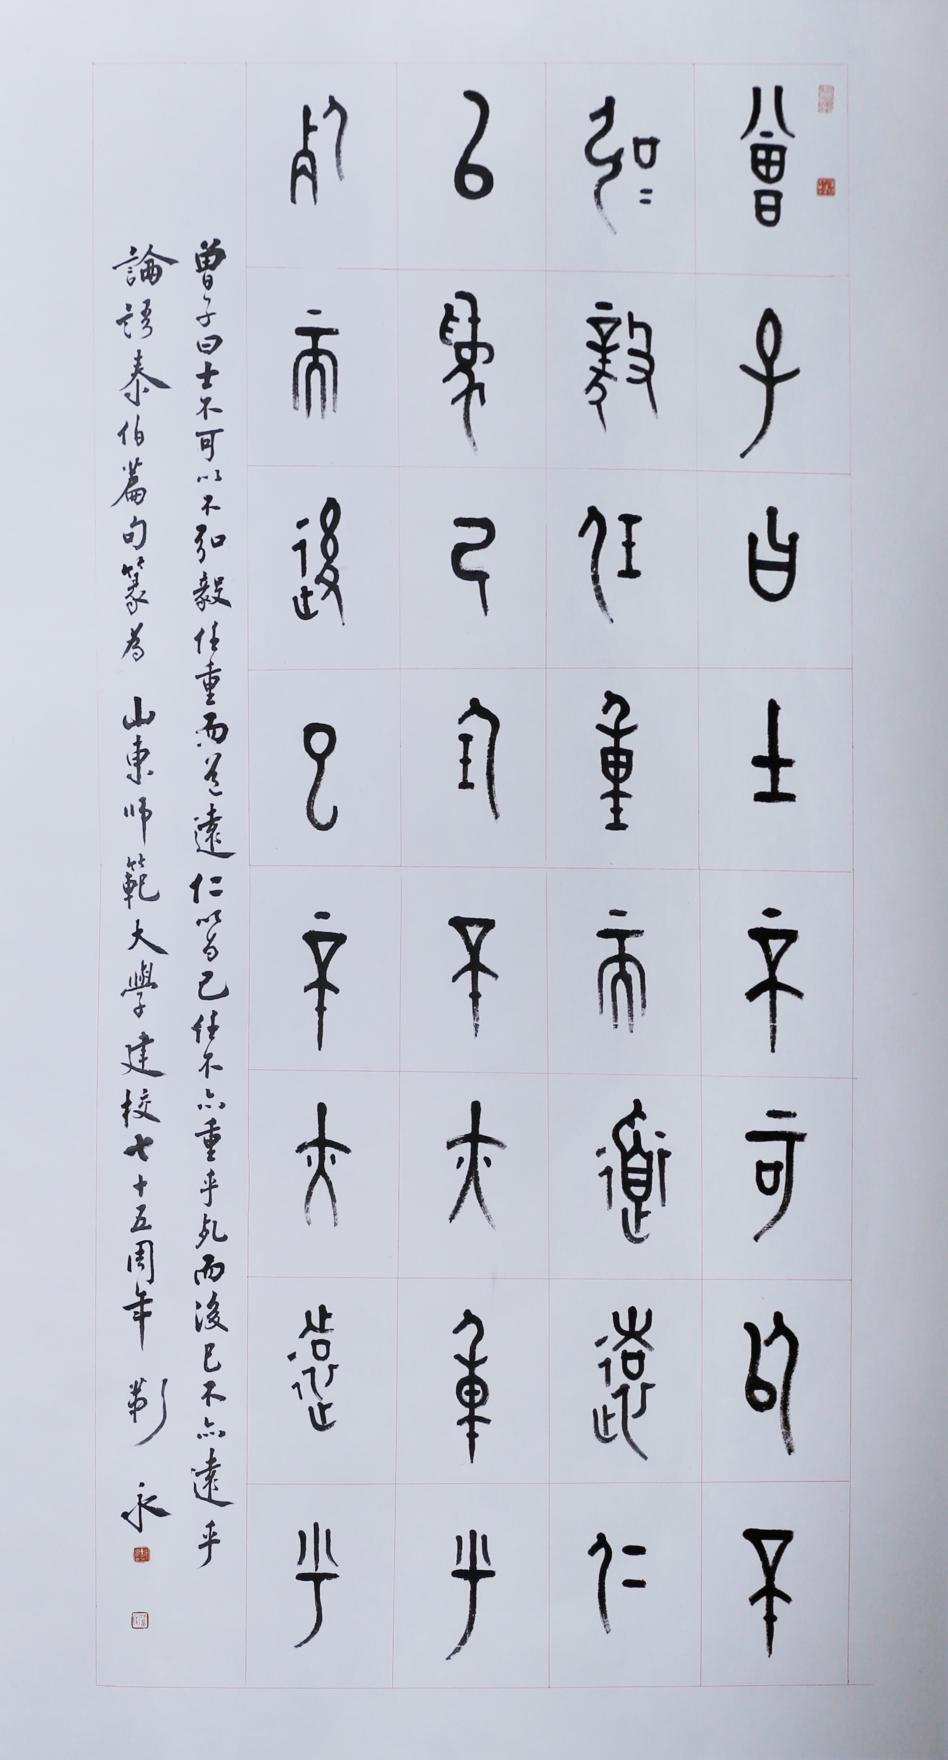 曾子曰士不可以不
弘毅任重而道遠仁
以為己任不亦重乎
死而後已不亦遠乎
曾子曰士不可以不弘毅任重而道遠仁以為己任不亦重乎死而後已不亦遠乎
論語泰伯篇句篆為 山東師範大學建校七十五周年 永